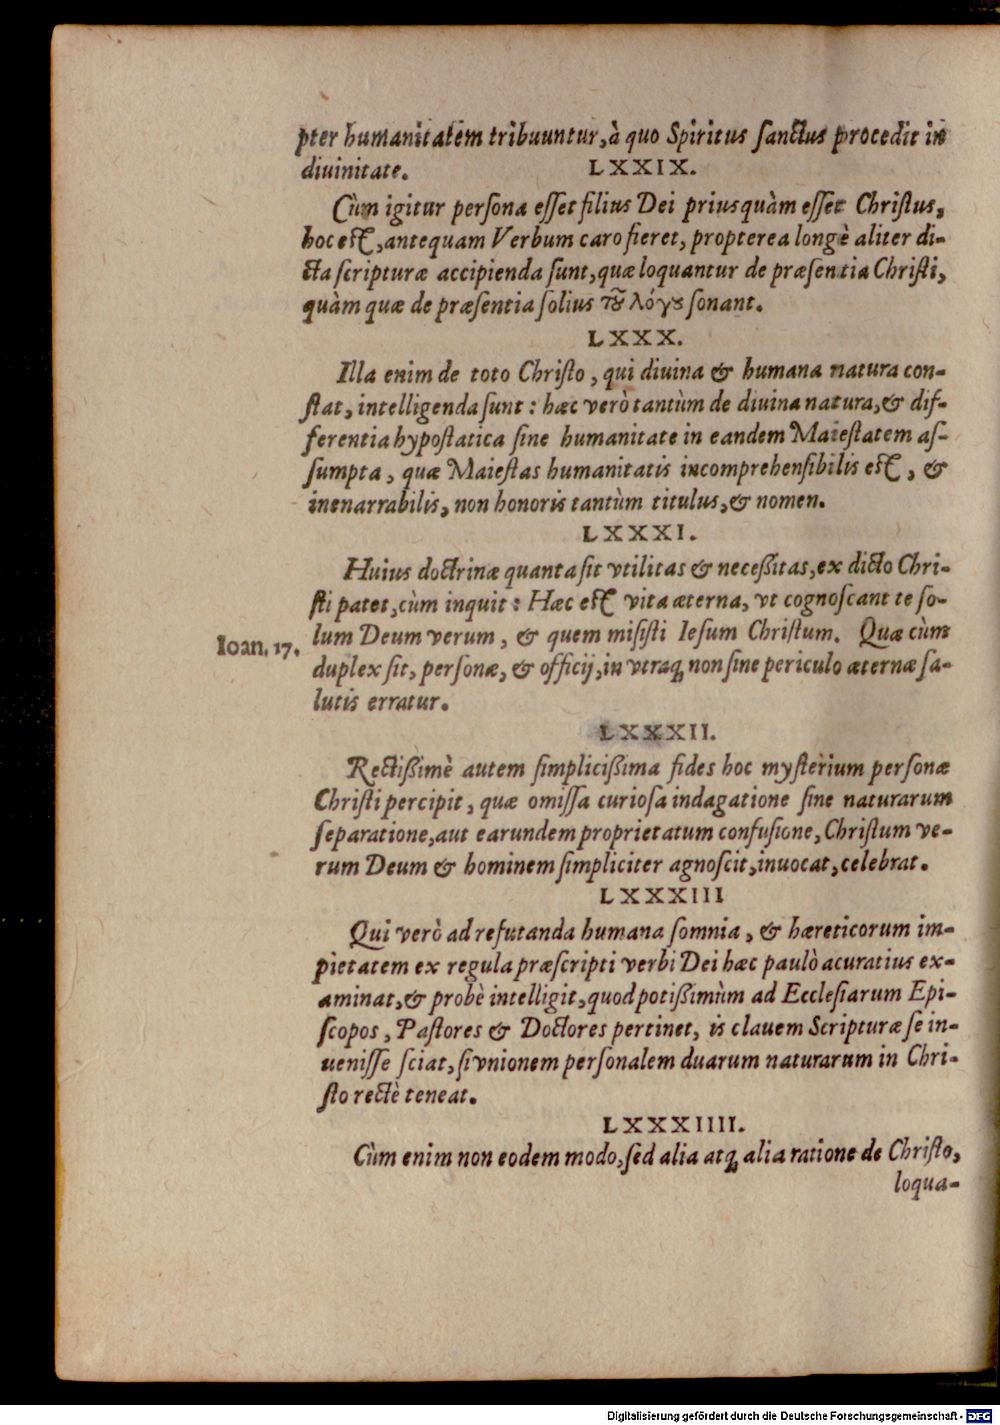 pter humanitatem tribuuntur, à quo Spiritus ſanctus procedit in
diuinitate. LXXIX.
Cùm igitur perſona eſſet filius Dei priusquàm eſſet Chriſtus,
hoc eſt, antequam Verbum caro fieret, propterea longè aliter di-
cta ſcripturæ accipienda ſunt, quæ loquuntur de præſentia Chriſti,
quàm quæ de præſentia ſolius τȣ͂ λόγȣ ſonant.
LXXX.
Illa enim de toto Chriſto, qui diuina & humana natura con-
ſtat, intelligenda ſunt: hæc verò tantùm de diuina natura, & dif-
ferentia hypoſtatica ſine humanitate in eandem Maieſtatem aſ-
ſumpta, quæ Maieſtas humanitatis incomprehenſibilis eſt, &
inenarrabilis, non honoris tantùm titulus, & nomen.
LXXXI.
Huius doctrinæ quanta ſit vtilitas & neceßitas, ex dicto Chri-
ſti patet, cùm inquit: Hæc eſt vita æterna, vt cognoſcant te ſo-
Ioan. 17. lum Deum verum, & quem miſiſti Ieſum Chriſtum. Quæ cùm
duplex ſit, perſonæ, & officij, in vtraq; non ſine periculo æternæ ſa-
lutis erratur.
LXXXII.
Rectißimè autem ſimplicißima fides hoc myſterium perſonæ
Chriſti percipit, quæ omiſſa curioſa indagatione ſine naturarum
ſeparatione, aut earundem proprietatum confuſione, Chriſtum ve-
rum Deum & hominem ſimpliciter agnoſcit, inuocat, celebrat.
LXXXIII
Qui verò ad refutanda humana ſomnia, & hæreticorum im-
pietatem ex regula præſcripti verbi Dei hæc paulò acuratius ex-
aminat, & probè intelligit, quod potißimùm ad Eccleſiarum Epi-
ſcopos, Paſtores & Doctores pertinet, is clauem Scripturæ ſe in-
ueniſſe ſciat, ſi vnionem perſonalem duarum naturarum in Chri-
ſto rectè teneat.
LXXXIIII.
Cùm enim non eodem modo, ſed alia atq; alia ratione de Chriſto,
loqua-
Digitalisierung gefördert durch die Deutsche Forschungsgemeinschaft - DFG